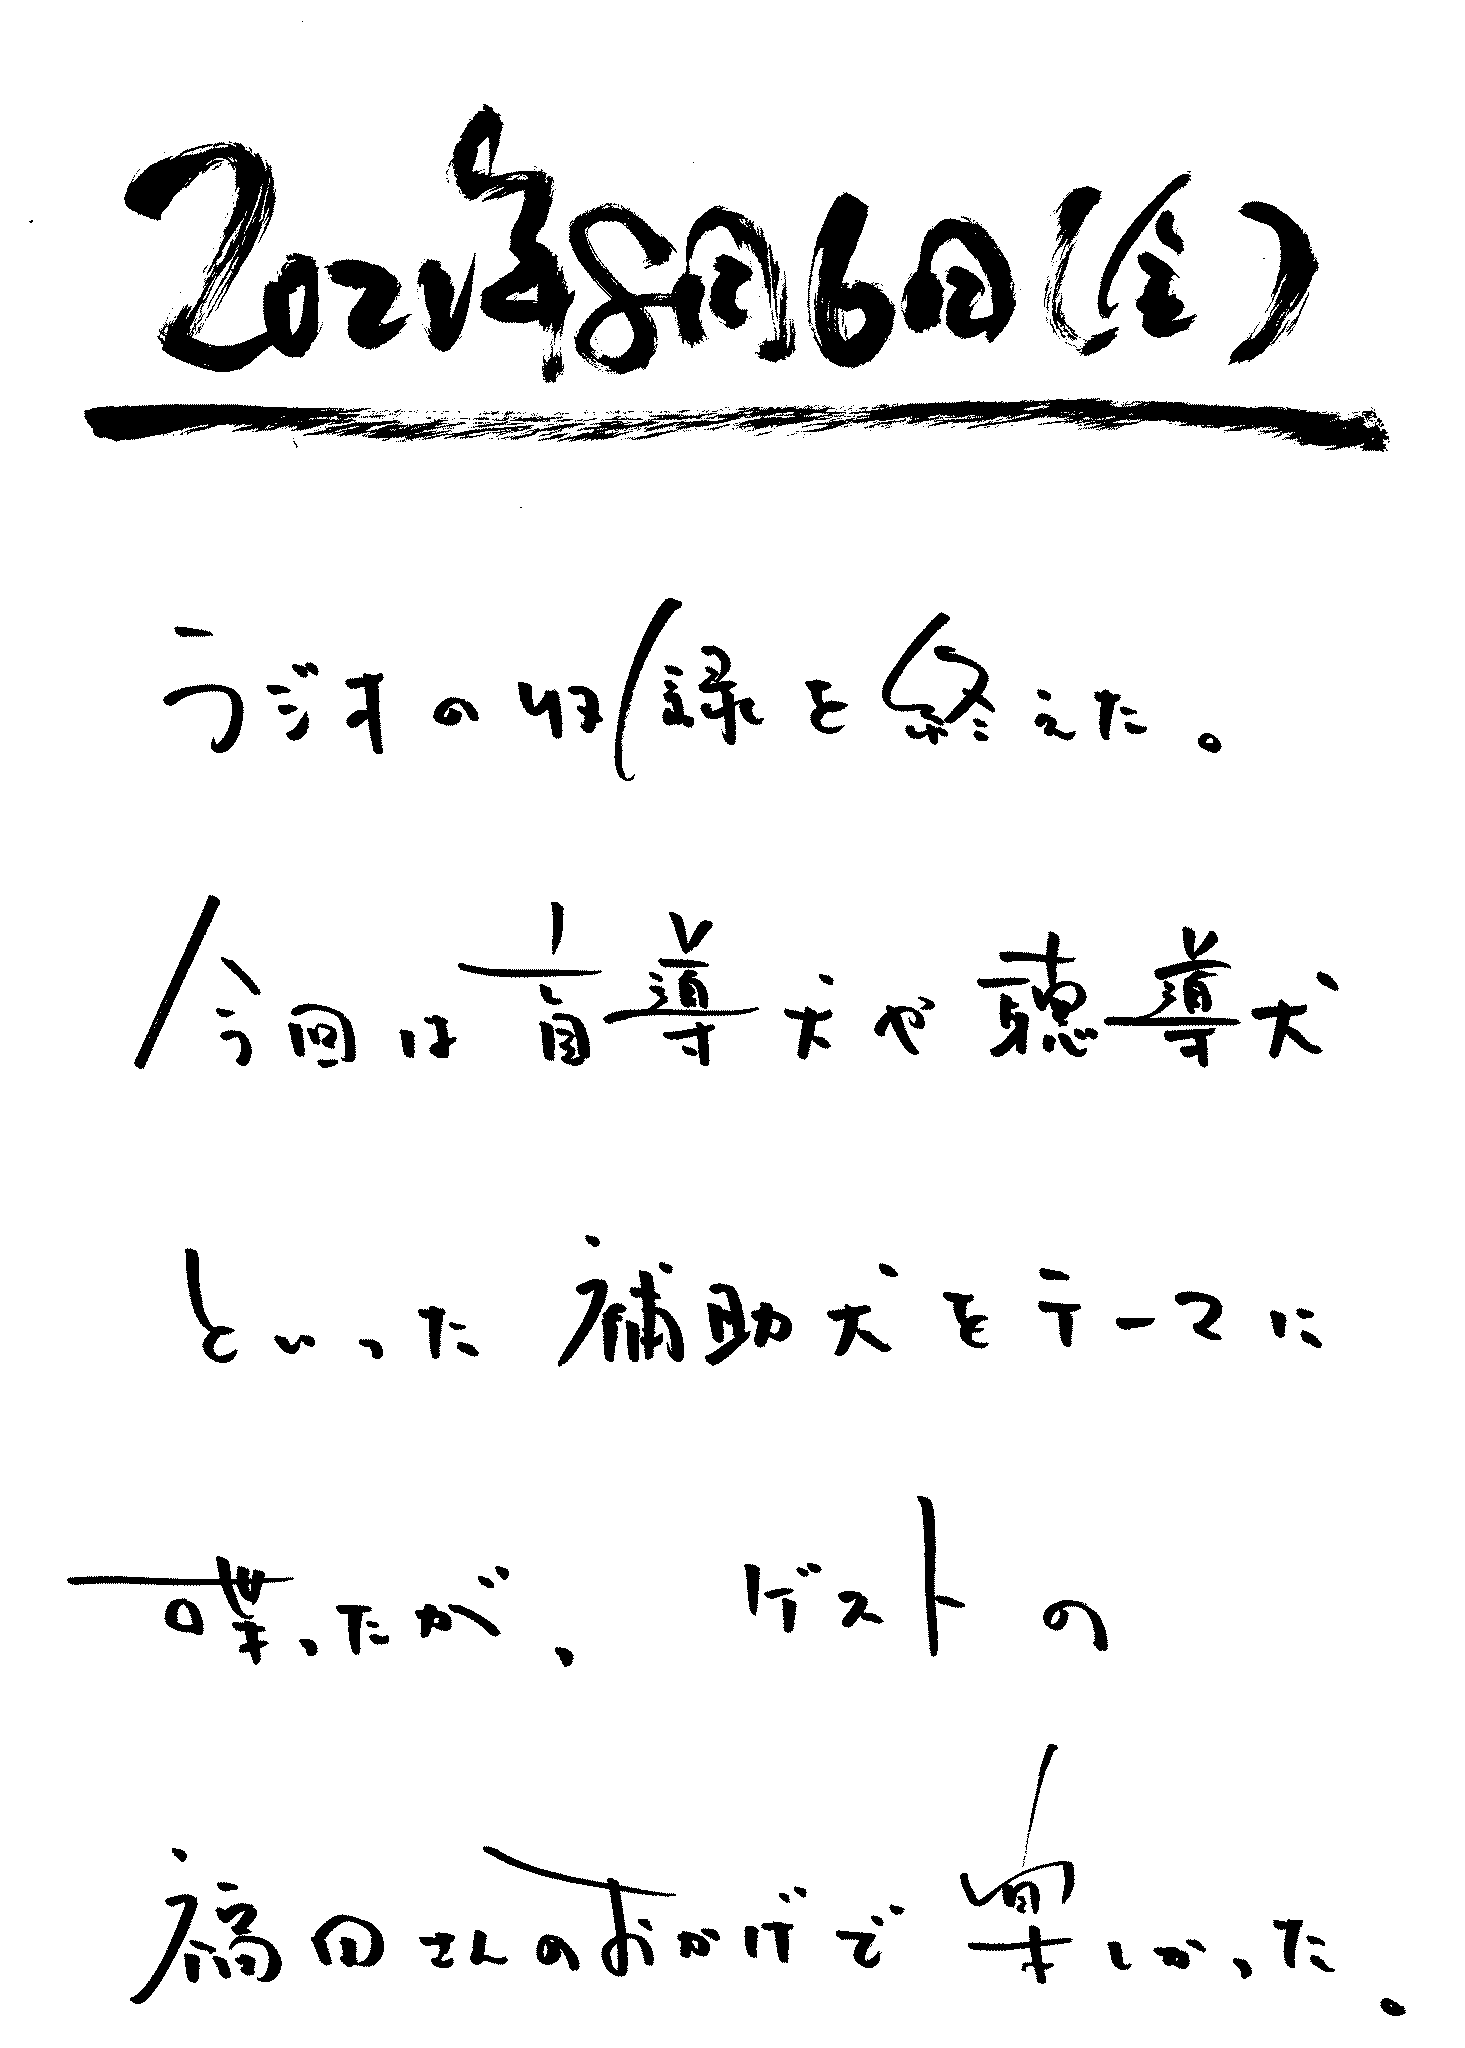 2021年8月6日(金)
ラジオの収録を終えた。
今回は盲導犬や聴導犬
といった補助犬をテーマに
喋ったが、ゲストの
福田さんのおかげで楽しかった。